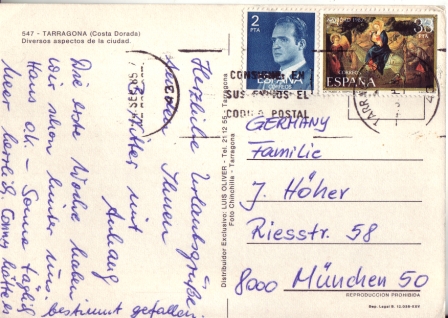 547 - TARRAGONA (Costa Dorada)
Diversos aspectos de la ciudad.
Herzliche Urlaubsgrüße
senden Ihnen
mit
Anhang
Die erste Woche haben
wir schon hinter uns.
Haus o.k. - Sonne täglich
Meer herrlich. Conny hätte es
bestimmt gefallen.
Distribuidor Exclusivo: LUIS OLIVER - Tel. 2112 55 - Tarragona
Foto Chinchilla - Tarragona
2
PTA
ESPAÑA
CORREOS
ESPAÑA
CORREOS
CONSIGNE EN
SUS ENVIOS EL
CODIGO POSTAL
GERMANY
Familie
J. Höher
Riesstr. 58
8000 München 50
REPRODUCCION PROHIBIDA